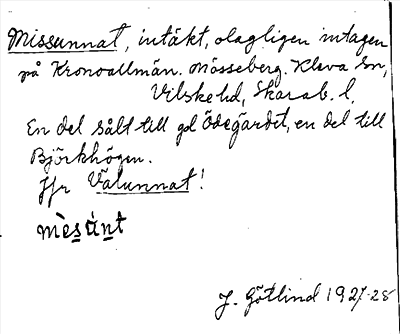 Missunnat, intäkt, olagligen intagen
på Kronoallmän. Mösseberg. Kleva sn,
Vilske hd, Skarab. l.
En del sålt till gd Ödegärdet, en del till
Björkhögen.
Jfr Välunnat!
mèsúnt
J. Götlind 1927-28